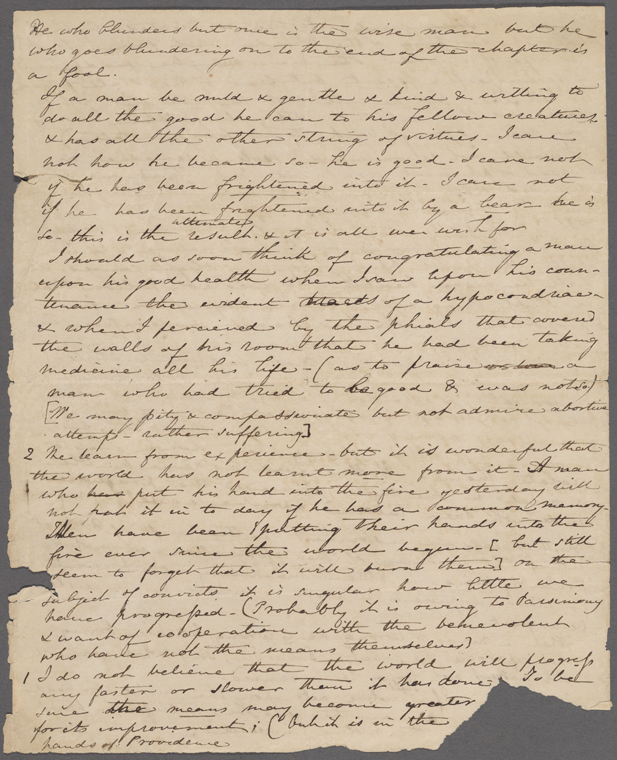 He who blunders but once is the wise man but he
who goes blundering on to the end of the chapter is
a fool.
If a man be mild & gentle & kind & willing to
do all the good he can to his fellow creatures
& has all the other string of virtues - I care
not how he became so - he is good - I care not
if he has been frightened into it - I care not
if he has been frightened into it by a bear he is
ultimate
so - this is the result. & it is all we wish for
I should as soon think of congratulating a man
upon his good health when I saw upon his coun-
tenance the evident of a hypocondriac -
& when I percieved by the phials that covered
the walls of his room that he had been taking
medicine all his life - (as to praise a
man who had tried to be good & was not so)
[We may pity & compassionate but not admire abortive
attempt - rather suffering]
2 We learn from experience - but it is wonderful that
the world has not learnt more from it - A man
who has put his hand into the fire yesterday will
not put it in to day if he has a common memory -
Men have been putting their hands into the
fire ever since the world began - [but still
seem to forget that it will burn them] on the
subject of convicts it is singular how little we
have progressed - (Probably it is owing to Parsimony
& want of cooperation with the benevolent
who have not the means themselves)
1 I do not believe that the world will progress
any faster or slower than it has done. To be
sure the means may become greater
for its improvement; (but it is in the
hands of Providence